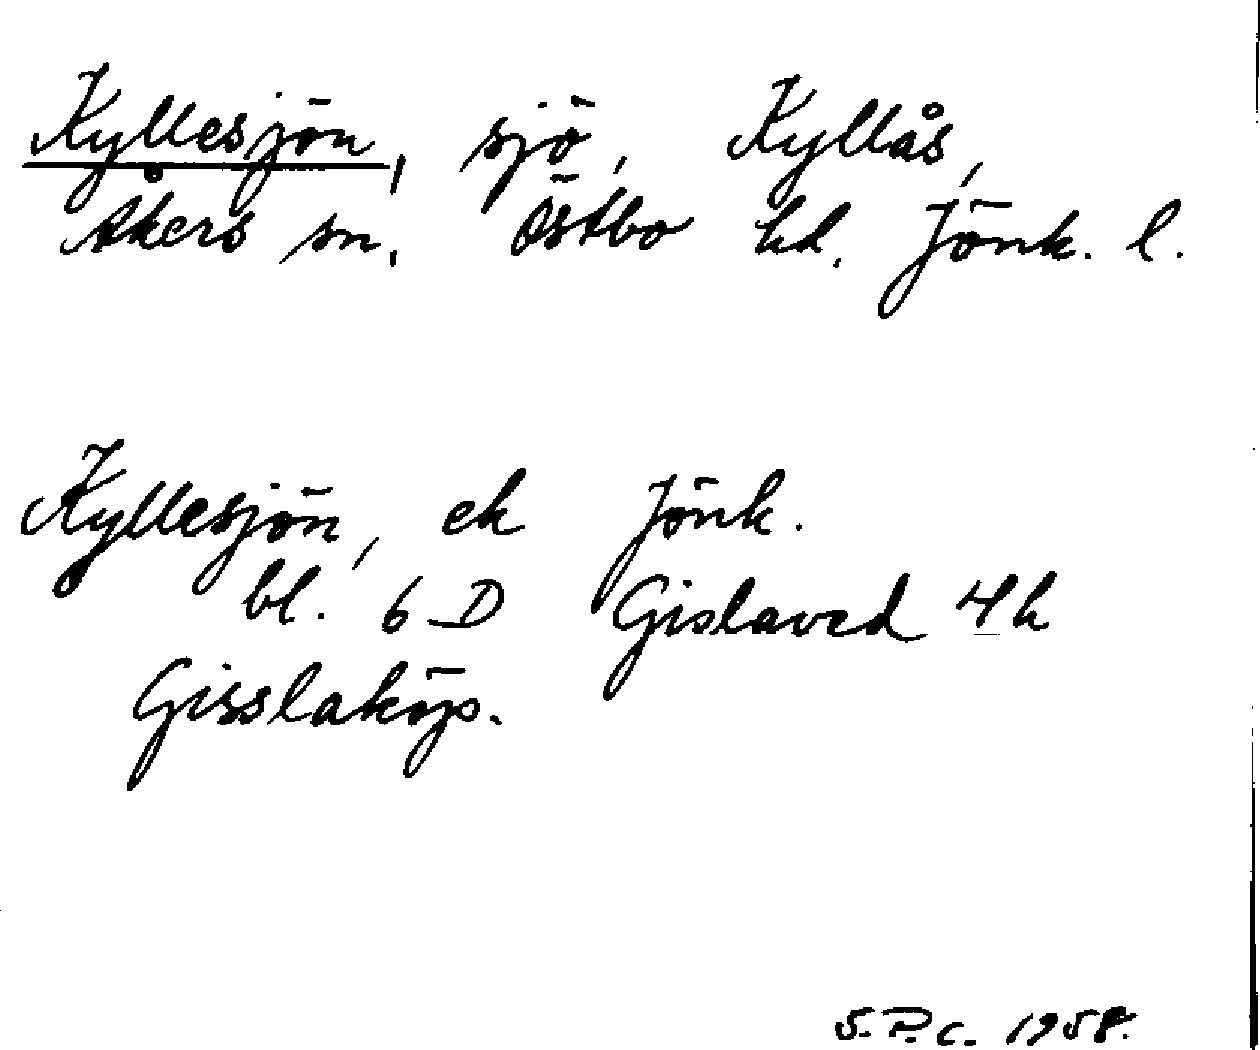 Kyllesjön, sjö, Kyllås,
Åkers sn. Östbo hd. Jönk. l.
Kyllesjön, ek Jönk.
bl. 6 D Gislaved 4 h
Gisslaköp.
S.P.C. 1958.